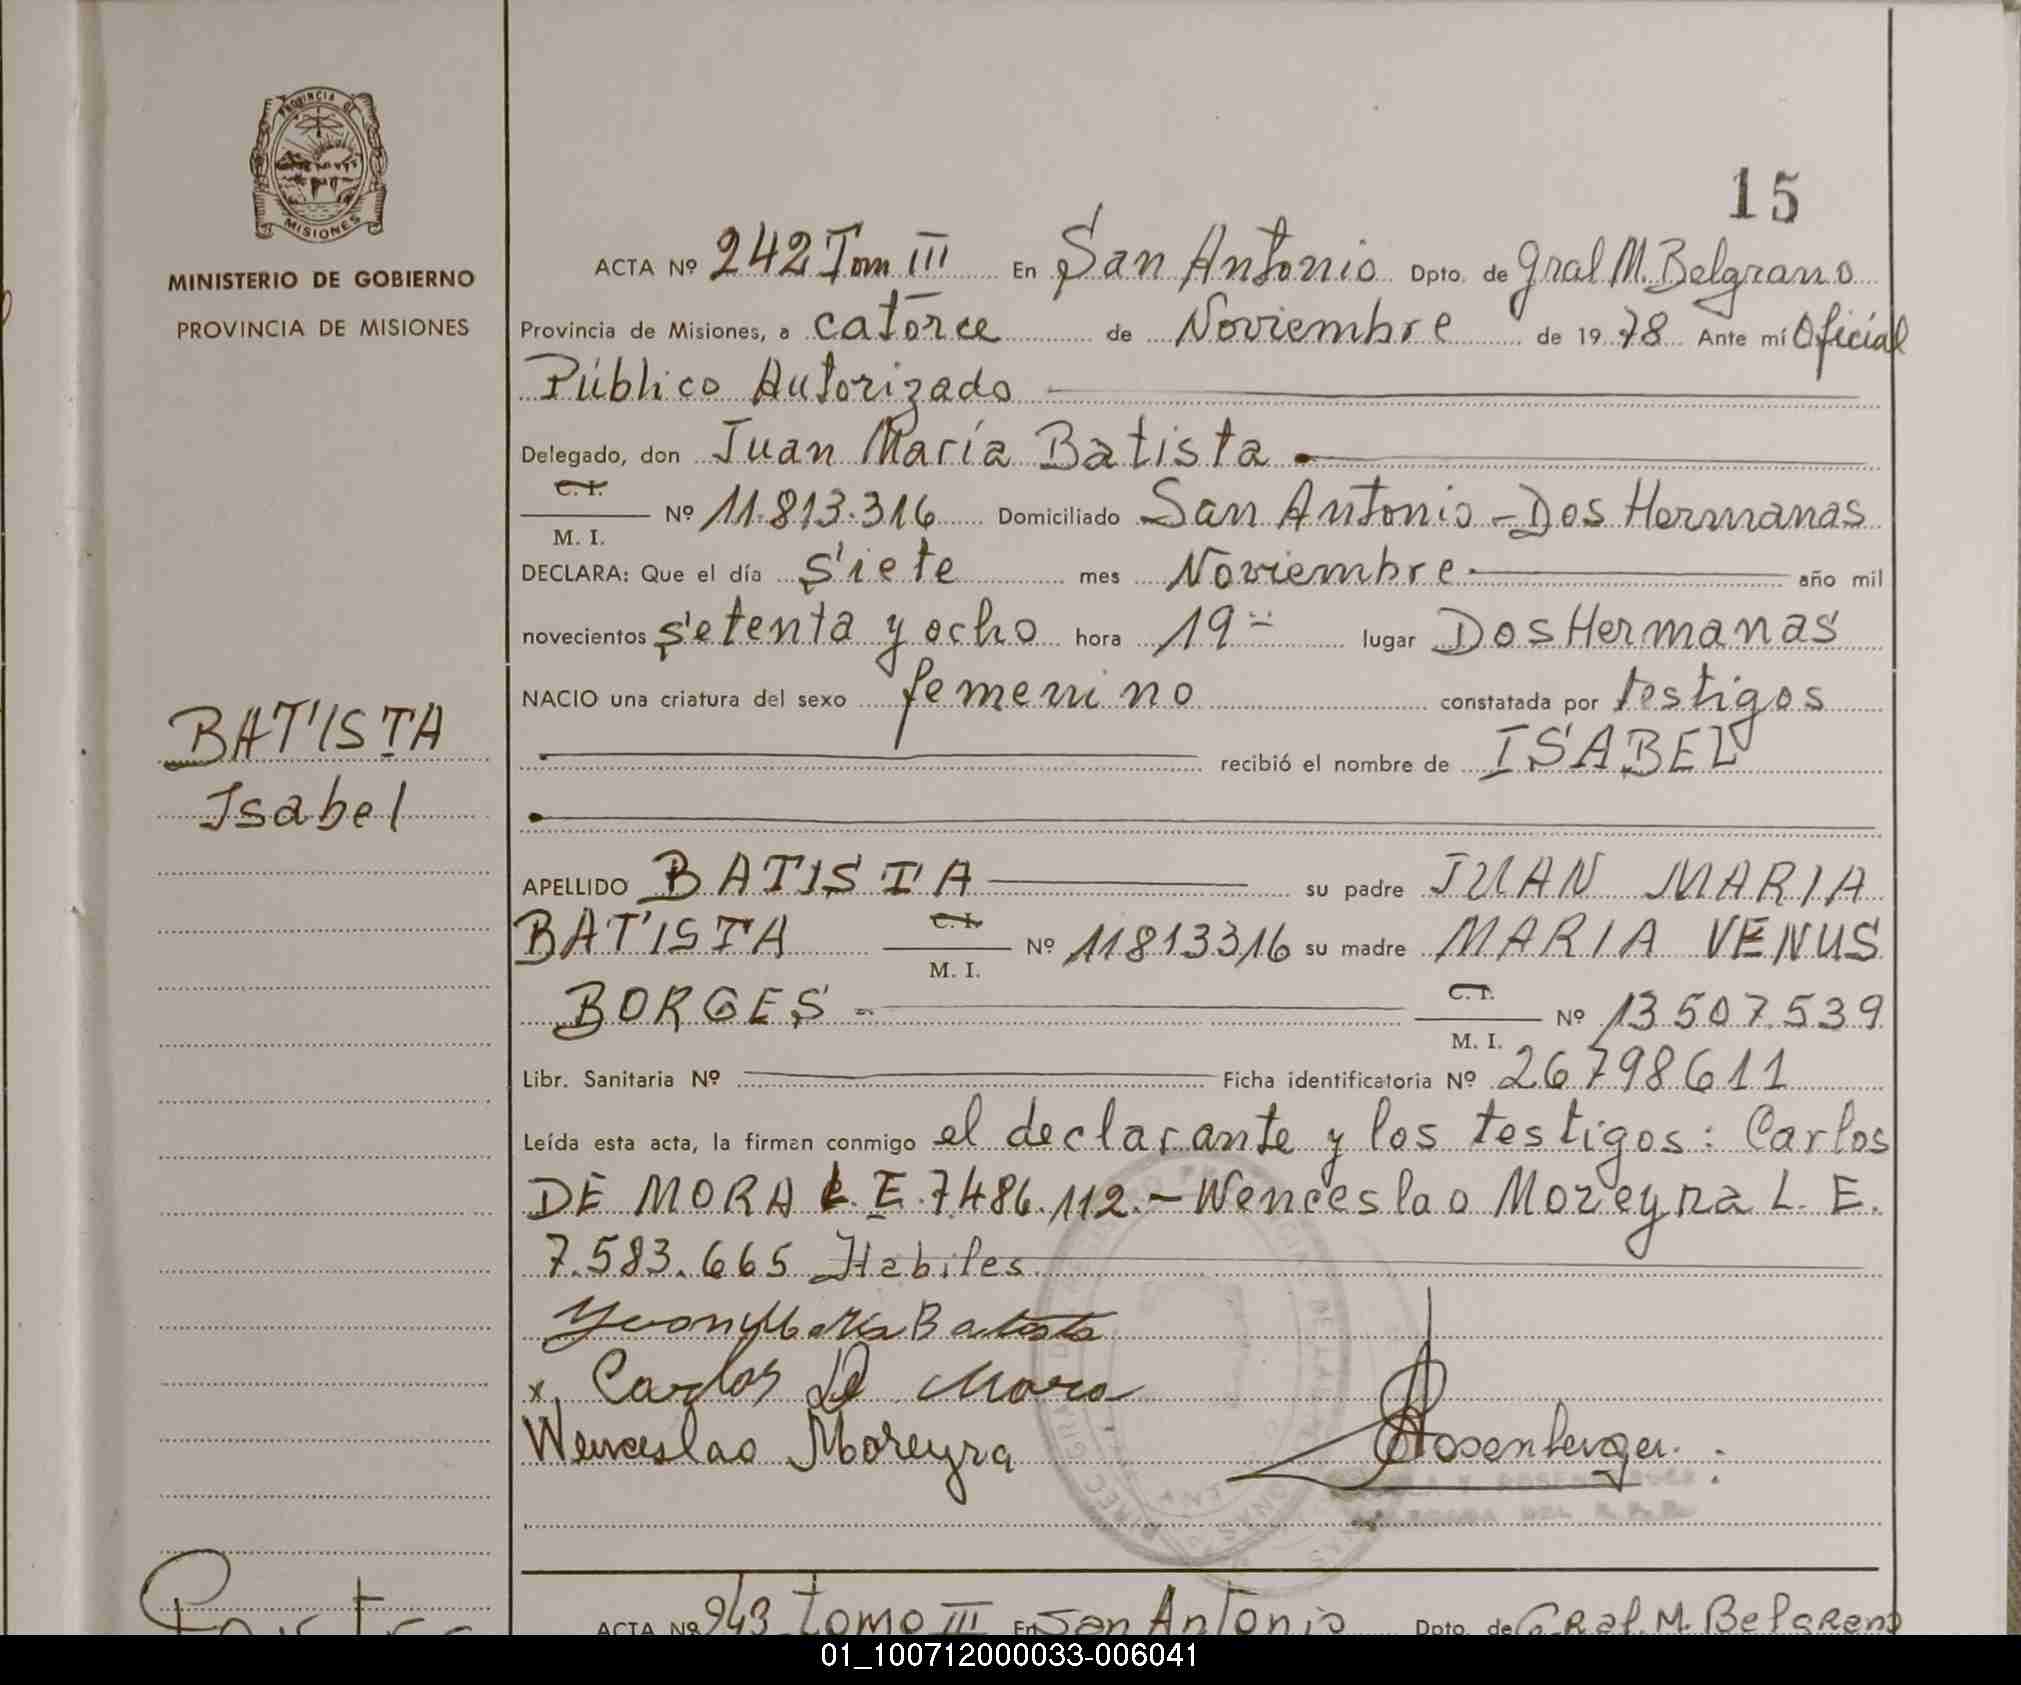 PROVINCIA DE
MISIONES
MINISTERIO DE GOBIERNO
PROVINCIA DE MISIONES
15
ACTA Nº 242 Tom III En San Antonio Dpto. de Gral M. Belgrano
Provincia de Misiones, a catorce de Noviembre de 1978 Ante mí Oficial
Público Autorizado
Delegado, don Juan María Batista
C. I.
M. I. Nº 11.813.316 Domiciliado San Antonio - Dos Hermanas
DECLARA: Que el día siete mes Noviembre año mil
novecientos setenta y ocho hora 19 lugar Dos Hermanas
NACIO una criatura del sexo femenino constatada por testigos
recibió el nombre de ISABEL
BATISTA
Isabel
APELLIDO BATISTA su padre JUAN MARIA
BATISTA C. I. M. I. Nº 11813316 su madre MARIA VENUS
BORGES C. I. M. I. Nº 13507539
Libr. Sanitaria Nº Ficha identificatoria Nº 26798611
Leída esta acta, la firman conmigo el declarante y los testigos: Carlos
DE MORA L. E. 7.486.112.- Wenceslao Moreyra L. E.
7.583.665 Habiles
Juan María Batista
x Carlos De Mora
Wenceslao Moreyra Rosenberger
ACTA Nº 243 tomo III En San Antonio Dpto. de Gral. M. Belgrano
01_100712000033-006041